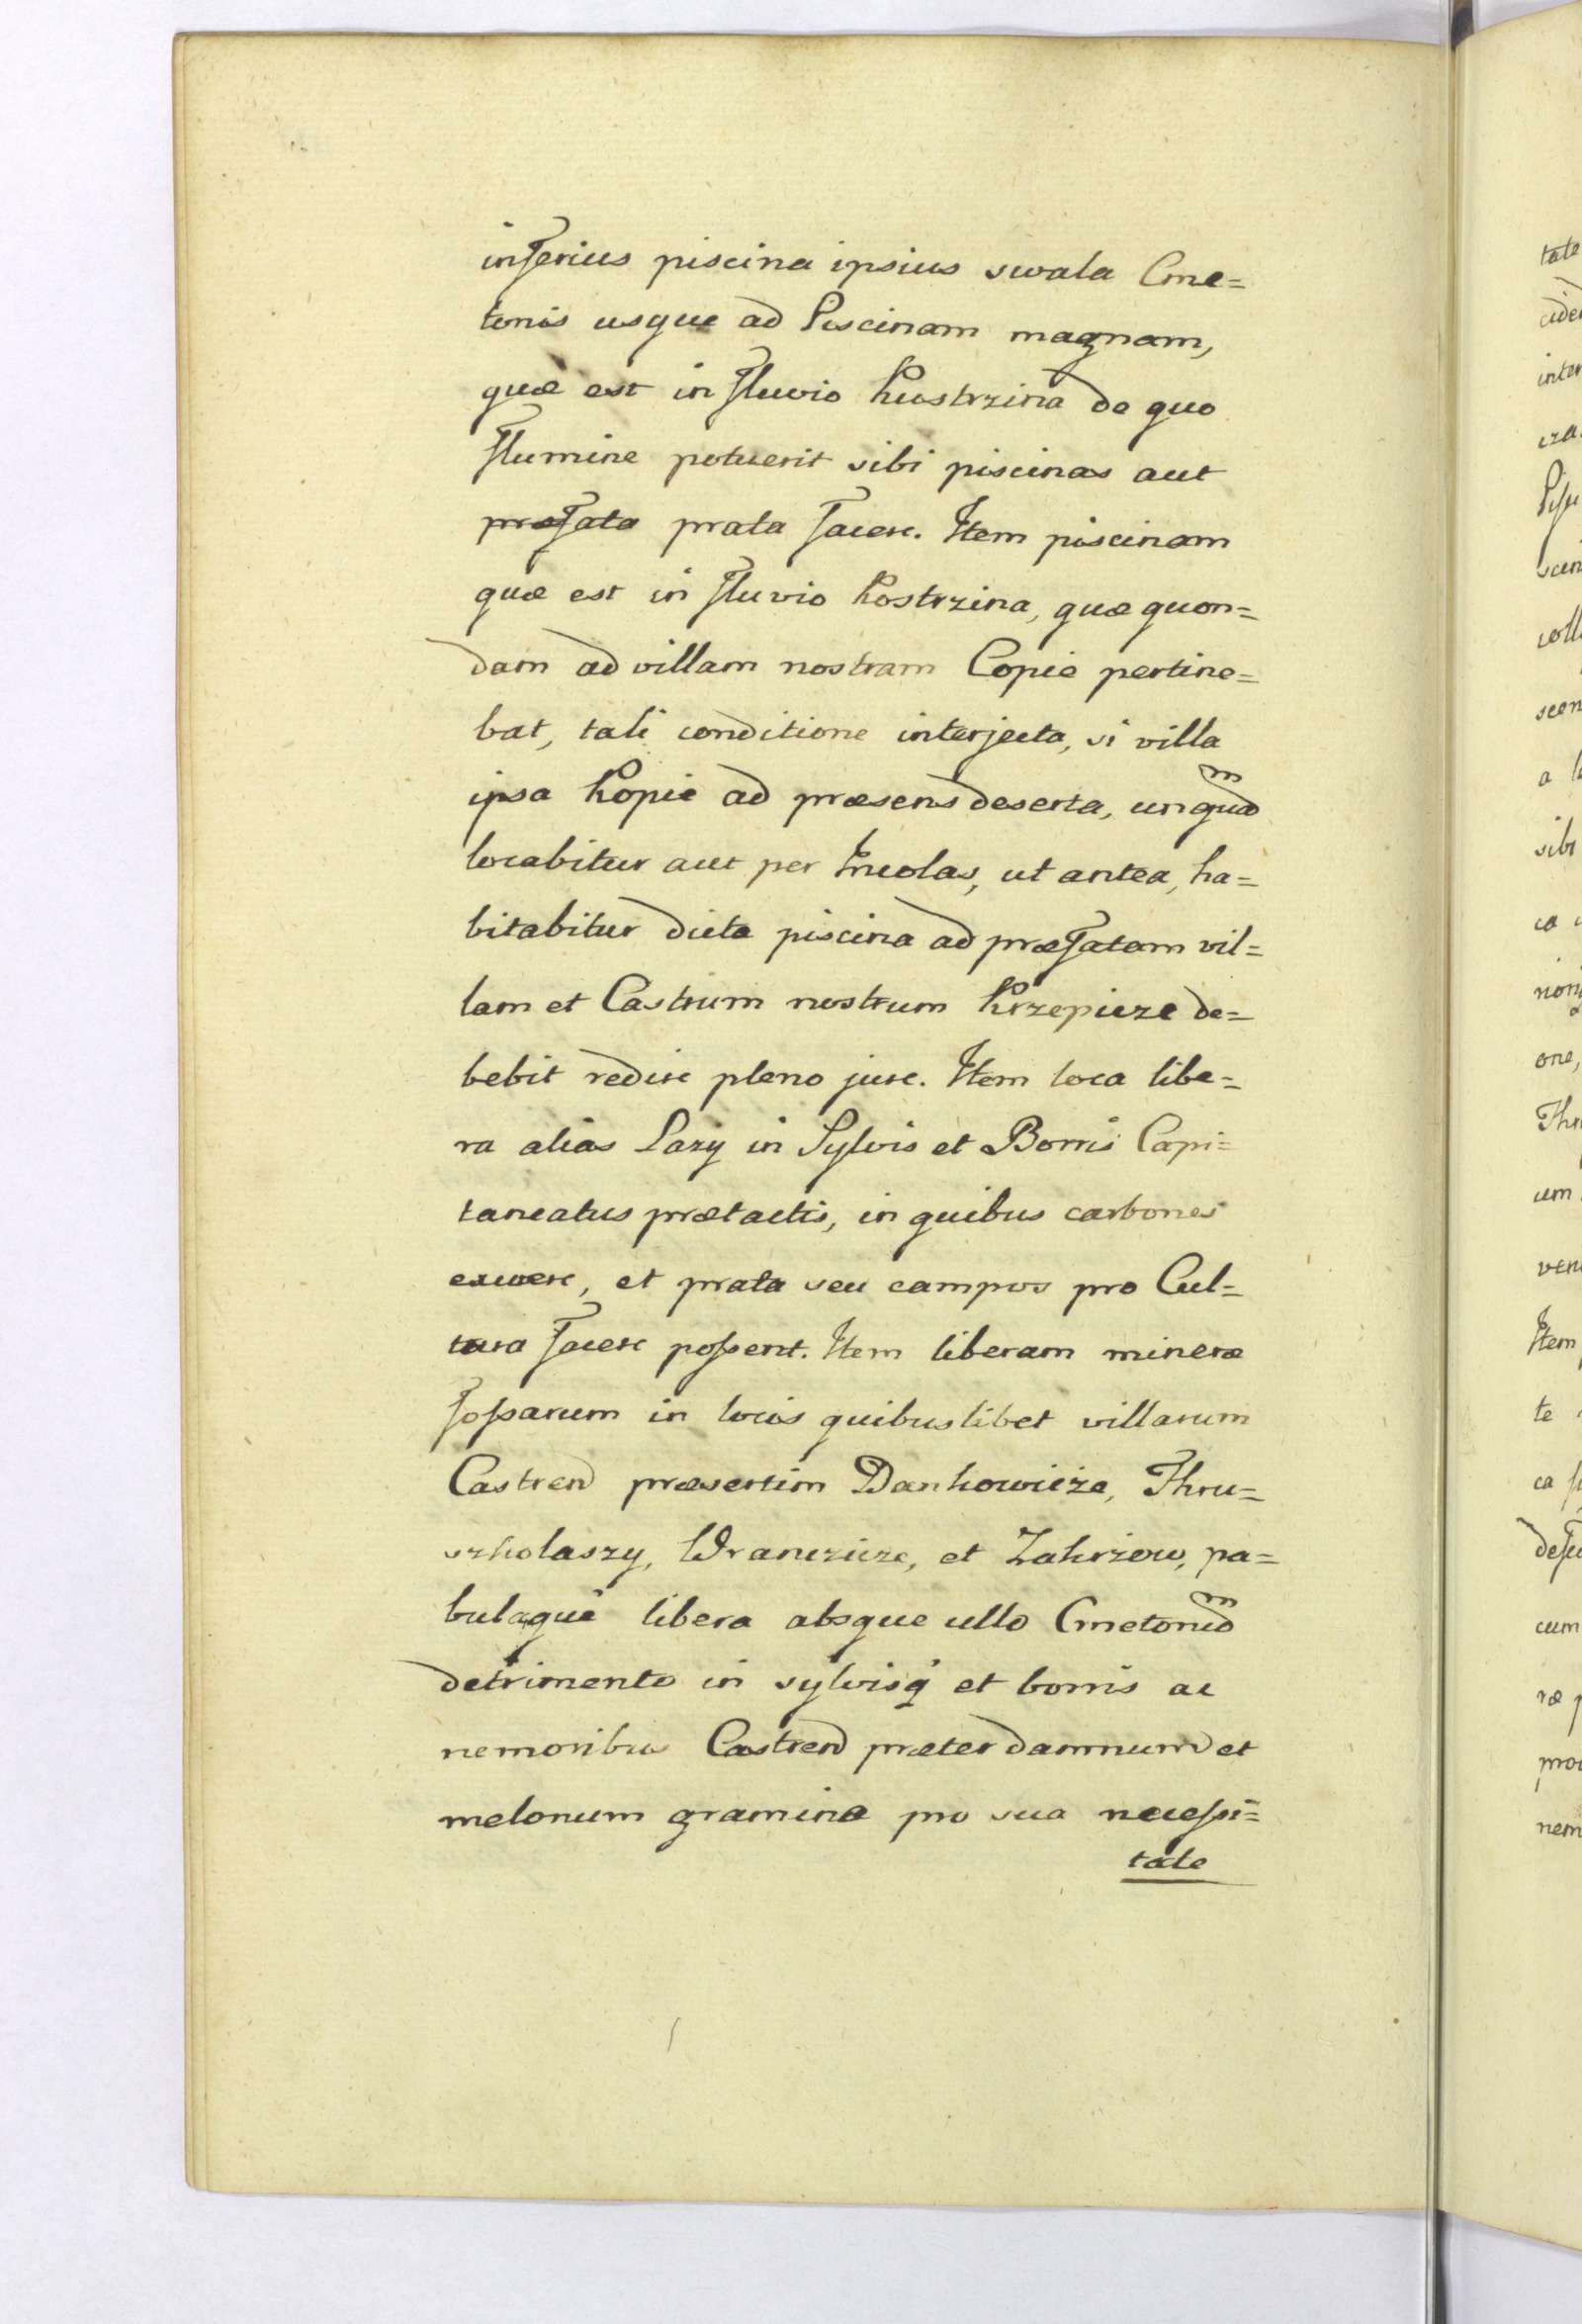 inferius piscina ipsius swala Cme=
tonis usque ad Piscinam magnam,
quæ est in fluvio Kustrzina de quo
flumine potuerit sibi piscinas aut
præfata prata facere. Item piscinam
quæ est in fluvio Kostrzina, quæ quon=
dam ad villam nostram Copie pertine=
bat, tali conditione interjecta, si villa
ipsa Kopie ad præsens deserta, unquam
locabitur aut per Incolas, ut antea, ha=
bitabitur dicta piscina ad præfatam vil=
lam et Castrum nostrum Krzepicze de=
bebit redire pleno jure. Item loca libe=
ra alias Lazy in Sylvis et Borris Capi=
taneatus prætactis, in quibus carbones
exurere, et prata seu campos pro Cul=
tura facere possent. Item liberam mineræ
fossarum in locis quibuslibet villarum
Castren præsertim Dankowicze, Thru=
szkolaszy, Wranczicze, et Zakrzow, pa=
bulaque libera absque ullo Cmetonum
detrimento in sylvisq et borris ac
nemoribus Castren præter damnum et
melonum gramina pro sua necessi=
tate
tate
inter
scen
coll
scen
sibi
one,
um
Item
te
cum
nem